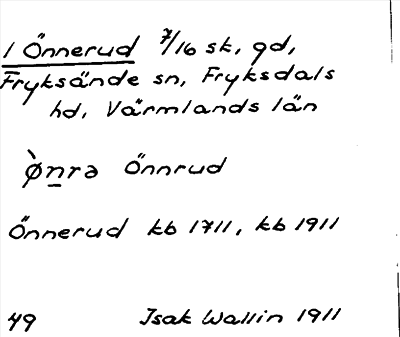 1 Önnerud 7/16 sk, gd,
Fryksände sn, Fryksdals
hd, Värmlands län
ø̀n̲rə Önnrud
Önnerud kb 1711, kb 1911
49 Isak Wallin 1911